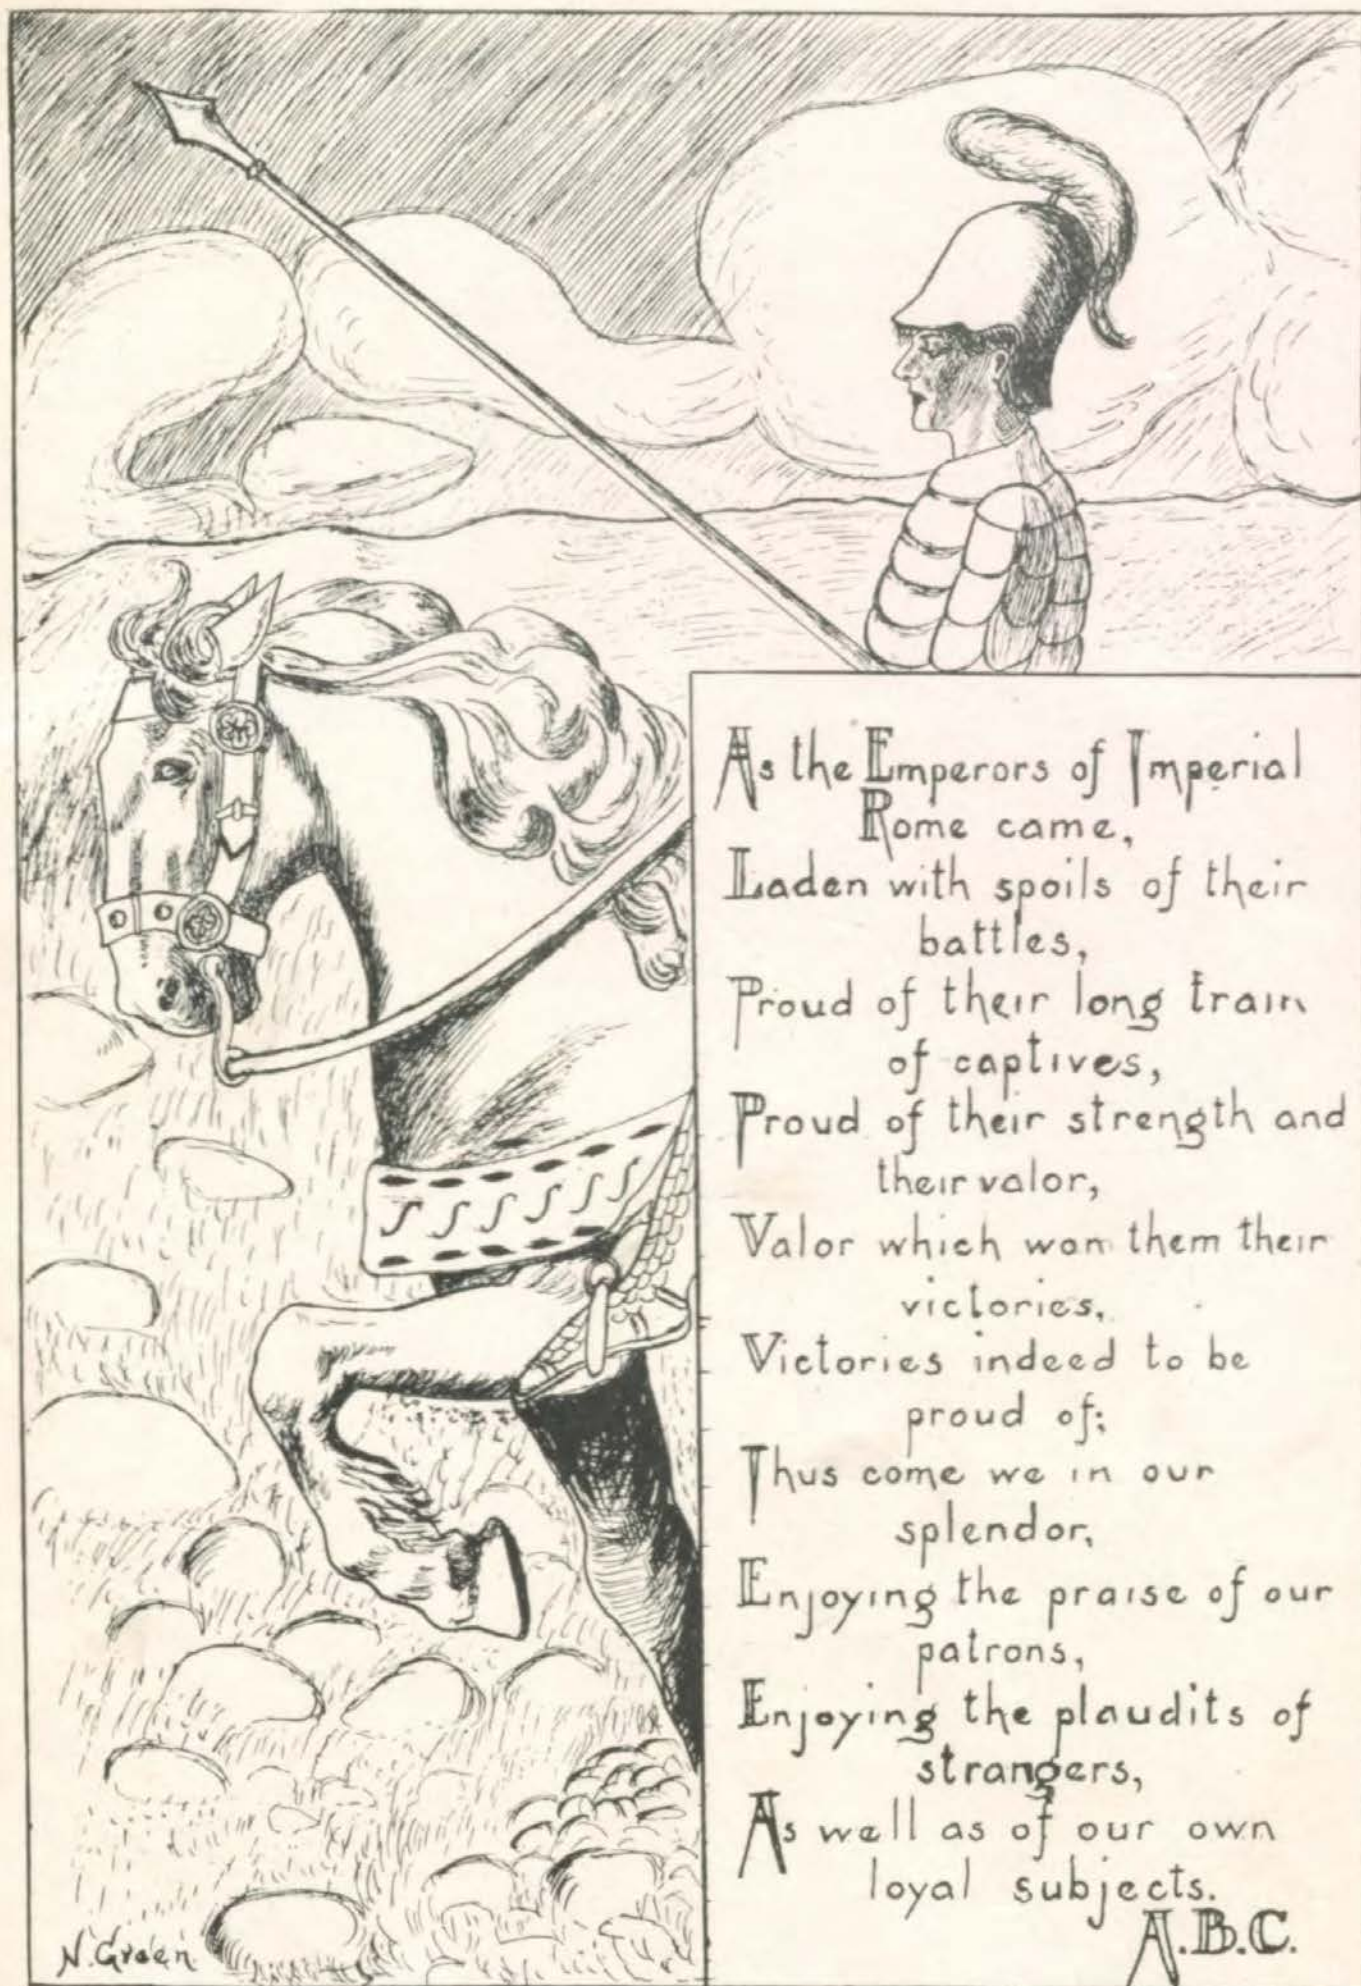 As the Emperors of Imperial
Rome came,
Laden with spoils of their
battles,
Proud of their long train
of captives,
Proud of their strength and
their valor,
Valor which won them their
victories,
Victories indeed to be
proud of;
Thus come we in our
splendor,
Enjoying the praise of our
patrons,
Enjoying the plaudits of
strangers,
As well as of our own
loyal subjects.
A.B.C.
N. Green